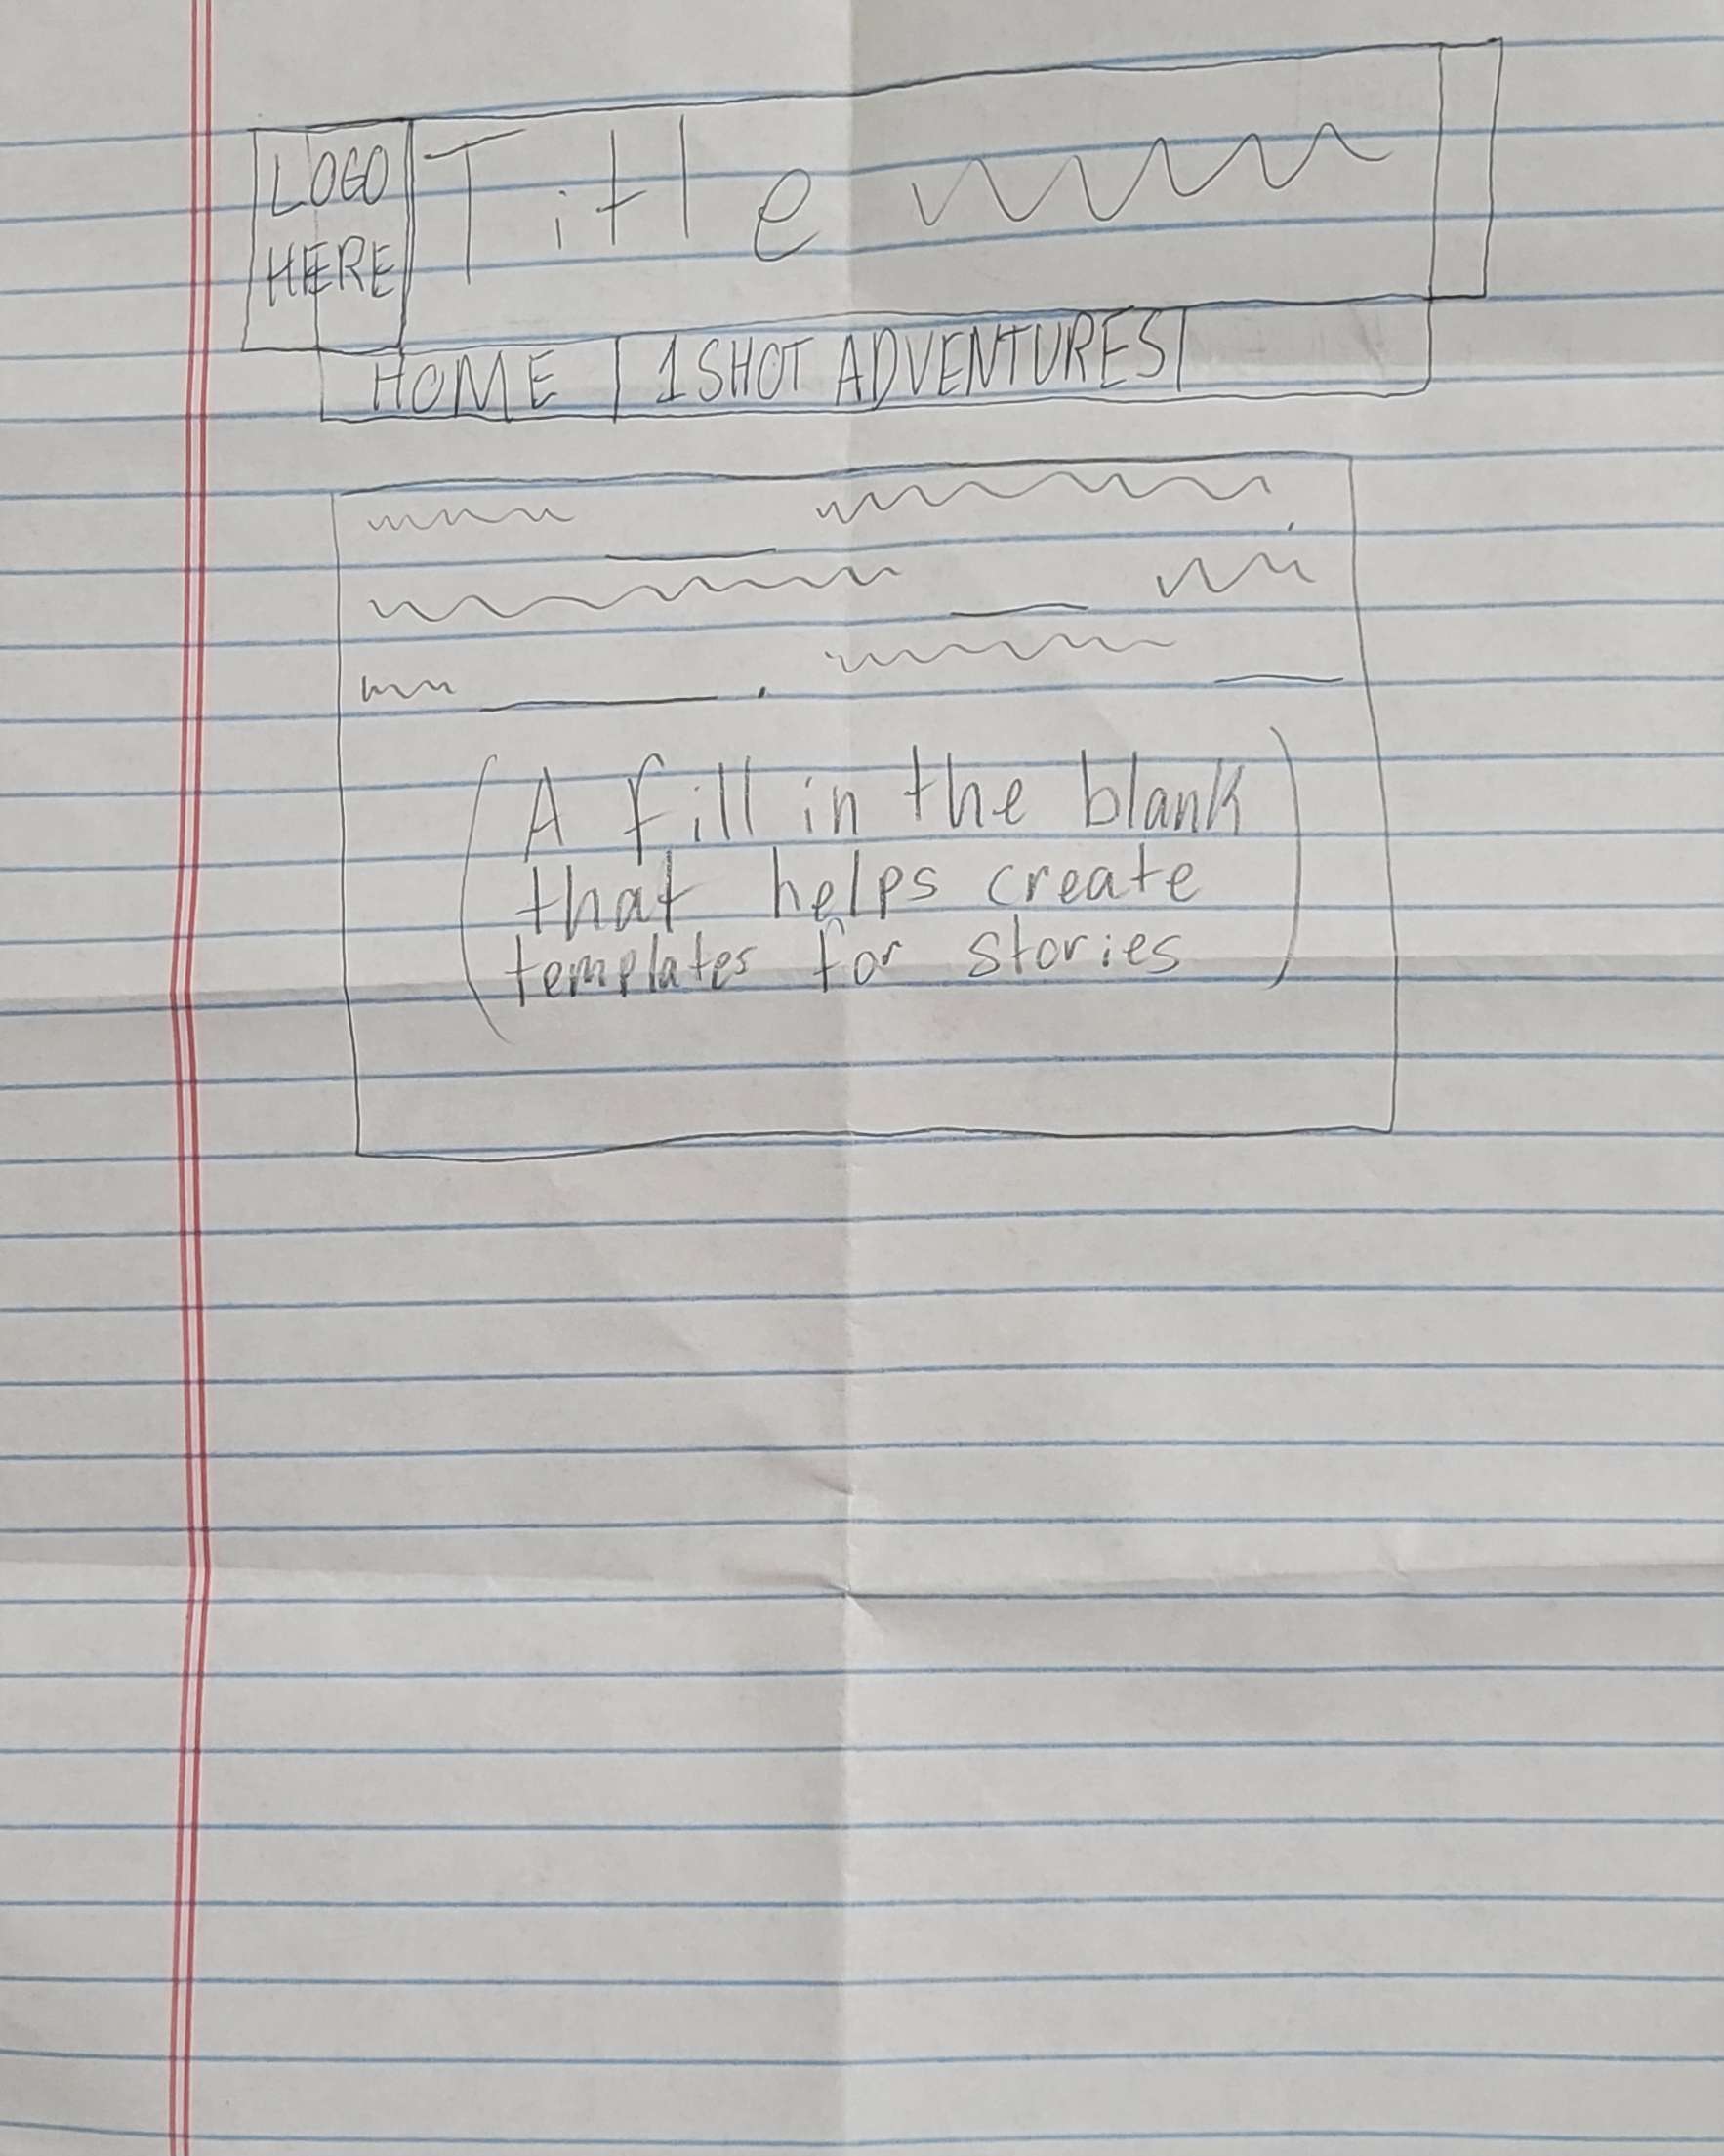 LOGO
HERE
Title
HOME | 1SHOT ADVENTURES|
(A fill in the blank
that helps create
templates for stories)